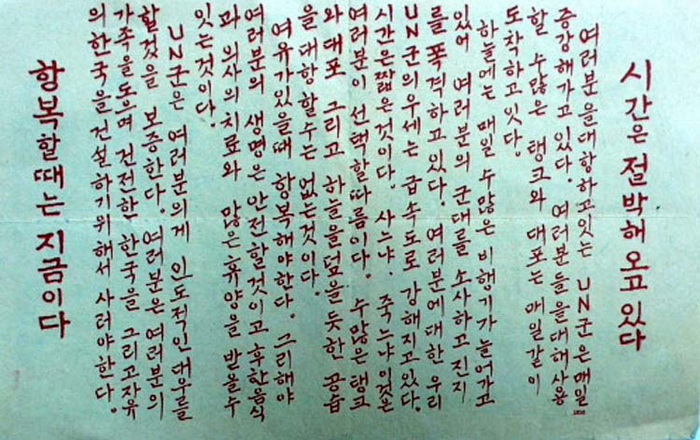 시간은 절박해 오고 있다
여러분을대항하고잇는 UN군은매일
증강해가고 있다. 여러분들을대해사용
할 수많은 탱크와 대포는 매일같이
도착하고잇다.
하늘에는 매일 수많은 비행기가늘어가고
있어 여러분의 군대를 소사하고 진지
를 폭격하고 있다. 여러분에대한 우리
UN군의우세는 급속도로 강해지고있다.
시간은짧은것이다. 사느냐. 죽느냐이것은
여러분이 선택할따름이다. 수많은탱크
와대포 그리고 하늘을덮을듯한 공습
을대항할수는 없는것이다.
여유가있을때 항복해야한다. 그리해야
여러분의 생명은안전할것이고 후한음식
과 의사의치료와 많은휴양을 받을수
잇는것이다.
UN군은 여러분의게 인도적인대우를
할것을 보증한다. 여러분은 여러분의
가족을도으며 건전한 한국을 그리고자유
의한국을건설하기위해서 사러야한다.
항복할때는 지금이다